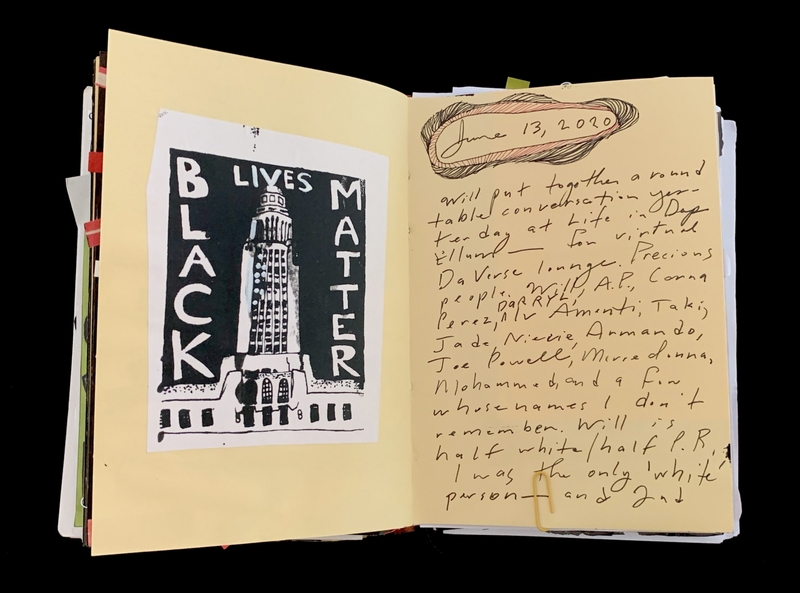 BLACK
LIVES
MATTER
June 13, 2020
Will put together a round
table conversation yes-
terday at Life in Deep
Ellum — for virtual
DaVerse lounge. Precious
people. Will, A.P., Corina
DARRYL,
Perez, Alv Amenti, Taki,
Jade, Nievie, Armando,
Joe Powell, Mirredonna,
Mohammed, and a few
whose names I don't
remember. Will is
half white/half P.R.
I was the only 'white'
person — and 2nd